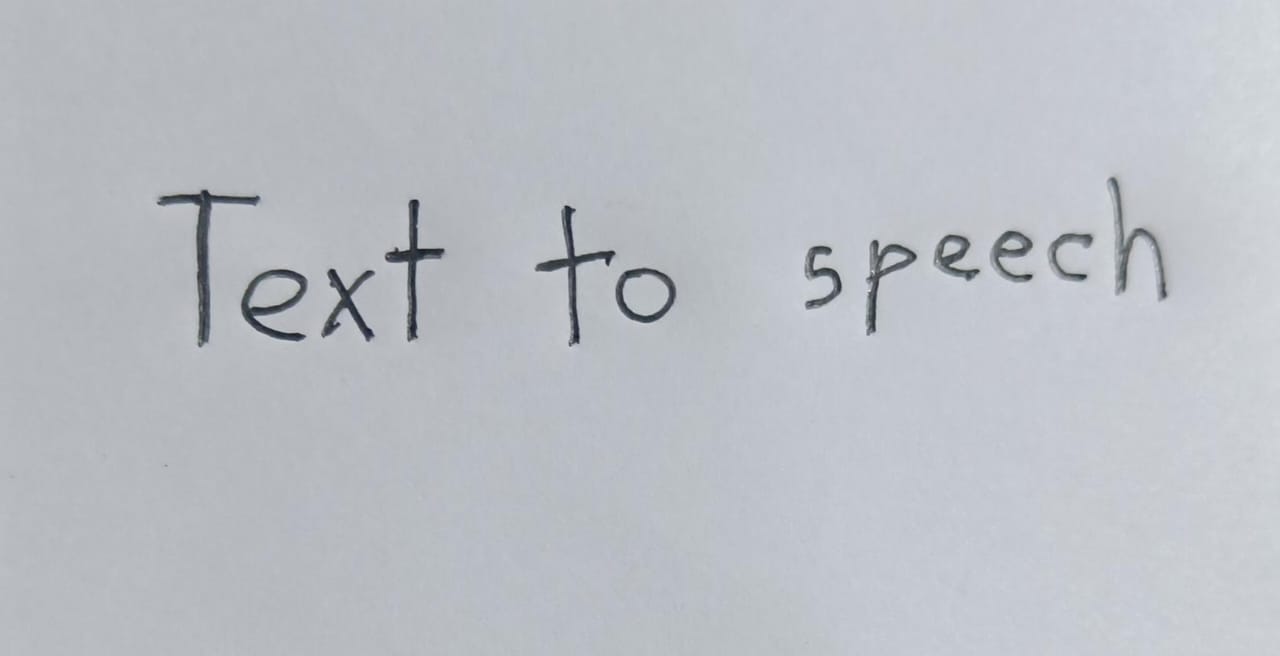 Text to speech